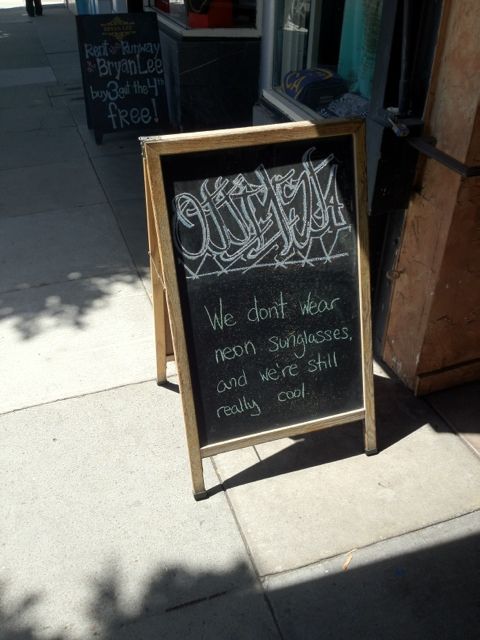 BRYAN LEE
Rent the Runway
BryanLee
buy 3 get the 4th
free!
We don't wear
neon sunglasses,
and we're still
really cool.